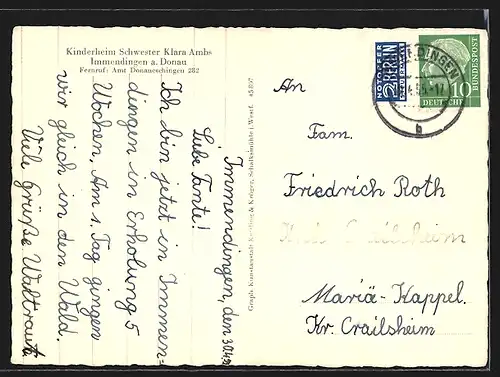 Kinderheim Schwester Klara Ambs
Immendingen a. Donau
Fernruf: Amt Donaueschingen 282
Immendingen, den
Liebe Tante!
Ich bin jetzt in Immen=
dingen in Erholung 5
Wochen. Am 1. Tag gingen
wir gleich in den Wald.
Viele Grüße Waltraut
Graph. Kunstanstalt Krüger, Schalksmühle i. Westf.
NOTOPFER
2 BERLIN
STEUERMARKE
DEUTSCHE
BUNDESPOST
10
b
An
Fam.
Friedrich Roth
Crailsheim
Mariä-Kappel.
Kr. Crailsheim